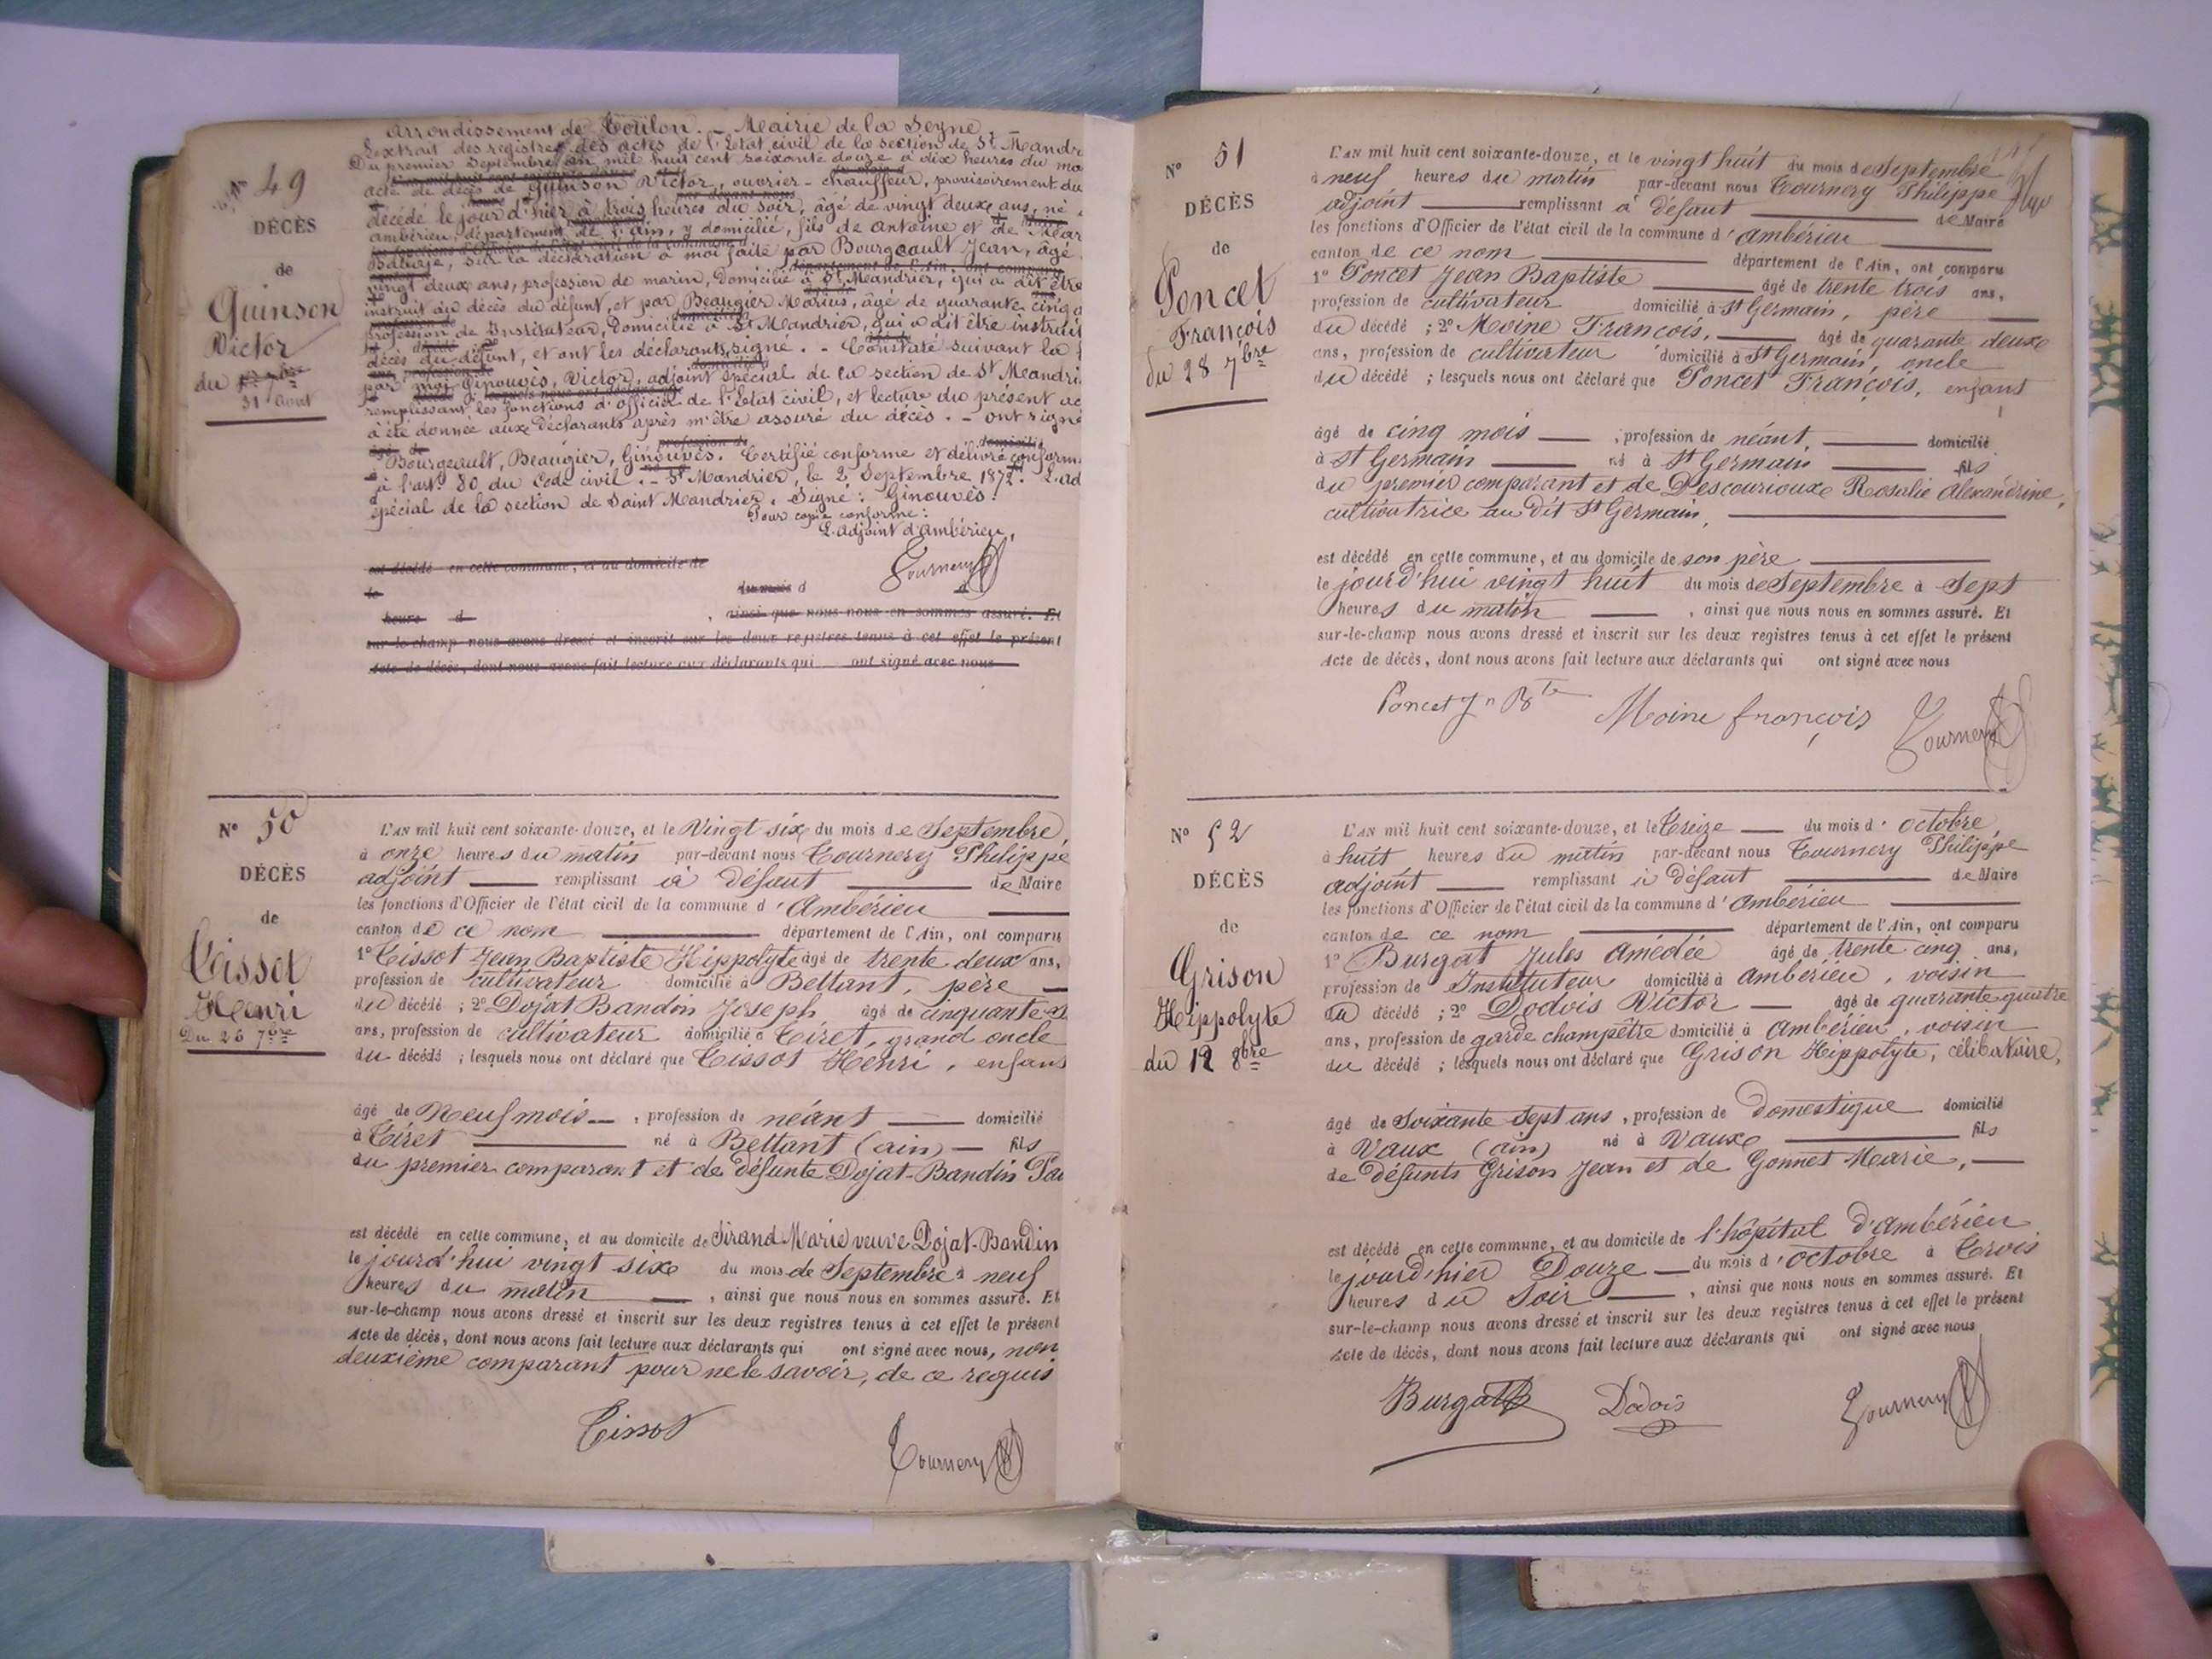 Arrondissement de Toulon. - Mairie de la Seyne.
Extrait des registres des actes de l'Etat civil de la section de St Mandr
Du premier Septembre an mil huit cent soixante douze à dix heures du ma
N° 49
DÉCÈS
de
Quinson
Victor
du 1er 7bre
31 Aout
acte de décès de Quinson Victor, ouvrier-chauffeur, provisoirement du
décédé le jour d'hier à trois heures du soir, âgé de vingt deux ans, né
ambérieu, département de l'ain, y domicilié, fils de Antoine et de Mar
sur la déclaration à moi faite par Bourgeault Jean, âgé
vingt deux ans, profession de marin, domicilié à St Mandrier, qui a dit être
instruit du décès du défunt, et par Beaugier Marius, âgé de quarante cinq a
profession de Instituteur, domicilié à St Mandrier, qui a dit être instruit
décès du défunt, et ont les déclarants signé. - Constaté suivant la
par moi Ginouvès, Victor, adjoint spécial de la section de St Mandri
remplissant les fonctions d'officier de l'Etat civil, et lecture du présent ac
à été donnée aux déclarants après m'être assuré du décès. - ont signé
Bourgeault, Beaugier, Ginouvès. Certifié conforme et délivré conform
à l'art. 80 du Code civil. - St Mandrier, le 2 Septembre 1872. L'ad
spécial de la section de Saint Mandrier. Signé : Ginouvès.
Pour copie conforme :
L'adjoint d'Ambérieu,
Tournery
est décédé en cette commune, et au domicile de
le du mois d à
heure d , ainsi que nous nous en sommes assuré. Et
sur-le-champ nous avons dressé et inscrit sur les deux registres tenus à cet effet le présent
Acte de décès, dont nous avons fait lecture aux déclarants qui ont signé avec nous
N° 50
DÉCÈS
de
Tissot
Henri
Du 26 7bre
L'AN mil huit cent soixante-douze, et le Vingt six du mois de Septembre,
à onze heures du matin par-devant nous Tournery Philippe
adjoint remplissant à défaut de Maire
les fonctions d'Officier de l'état civil de la commune d'Ambérieu
canton de ce nom département de l'Ain, ont comparu
1° Tissot Jean Baptiste Hippolyte âgé de trente deux ans,
profession de cultivateur domicilié à Bettant, père
du décédé ; 2° Dojat Bandin Joseph âgé de cinquante
ans, profession de cultivateur domicilié à Tiret, grand oncle
du décédé ; lesquels nous ont déclaré que Tissot Henri, enfant
âgé de Neuf mois , profession de néant domicilié
à Tiret né à Bettant (ain) fils
du premier comparant et de défunte Dojat-Bandin
est décédé en cette commune, et au domicile de Sirand Marie veuve Dojat-Bandin
le jourd'hui vingt six du mois de Septembre à neuf
heures du matin , ainsi que nous nous en sommes assuré. Et
sur-le-champ nous avons dressé et inscrit sur les deux registres tenus à cet effet le présent
Acte de décès, dont nous avons fait lecture aux déclarants qui ont signé avec nous, non
deuxième comparant pour ne le savoir, de ce requis
Tissot
Tournery
N° 51
DÉCÈS
de
Poncet
François
du 28 7bre
L'AN mil huit cent soixante-douze, et le vingt huit du mois de Septembre
à neuf heures du matin par-devant nous Tournery Philippe
adjoint remplissant à défaut de Maire
les fonctions d'Officier de l'état civil de la commune d'Ambérieu
canton de ce nom département de l'Ain, ont comparu
1° Poncet Jean Baptiste âgé de trente trois ans,
profession de cultivateur domicilié à St Germain, père
du décédé ; 2° Moine François, âgé de quarante deux
ans, profession de cultivateur domicilié à St Germain, oncle
du décédé ; lesquels nous ont déclaré que Poncet François, enfant
âgé de cinq mois , profession de néant, domicilié
à St Germain né à St Germain fils
du premier comparant et de Descourioux Rosalie Alexandrine,
cultivatrice au dit St Germain,
est décédé en cette commune, et au domicile de son père
le jourd'hui vingt huit du mois de Septembre à Sept
heures du matin , ainsi que nous nous en sommes assuré. Et
sur-le-champ nous avons dressé et inscrit sur les deux registres tenus à cet effet le présent
Acte de décès, dont nous avons fait lecture aux déclarants qui ont signé avec nous
Poncet Jn Bte Moine françois Tournery
N° 52
DÉCÈS
de
Grison
Hippolyte
du 12 8bre
L'AN mil huit cent soixante-douze, et le Treize du mois d'octobre,
à huit heures du matin par-devant nous Tournery Philippe
adjoint remplissant à défaut de Maire
les fonctions d'Officier de l'état civil de la commune d'Ambérieu
canton de ce nom département de l'Ain, ont comparu
1° Burgat Jules Amédée âgé de trente cinq ans,
profession de Instituteur domicilié à Ambérieu, voisin
du décédé ; 2° Dodois Victor âgé de quarante quatre
ans, profession de garde champêtre domicilié à Ambérieu, voisin
du décédé ; lesquels nous ont déclaré que Grison Hippolyte, célibataire,
âgé de Soixante Sept ans , profession de Domestique domicilié
à Vaux (ain) né à Vaux fils
de défunts Grison Jean et de Gonnet Marie,
est décédé en cette commune, et au domicile de l'hôpital d'Ambérieu
le jourd'hier Douze du mois d'octobre à Trois
heures du Soir , ainsi que nous nous en sommes assuré. Et
sur-le-champ nous avons dressé et inscrit sur les deux registres tenus à cet effet le présent
Acte de décès, dont nous avons fait lecture aux déclarants qui ont signé avec nous
Burgat Dodois Tournery